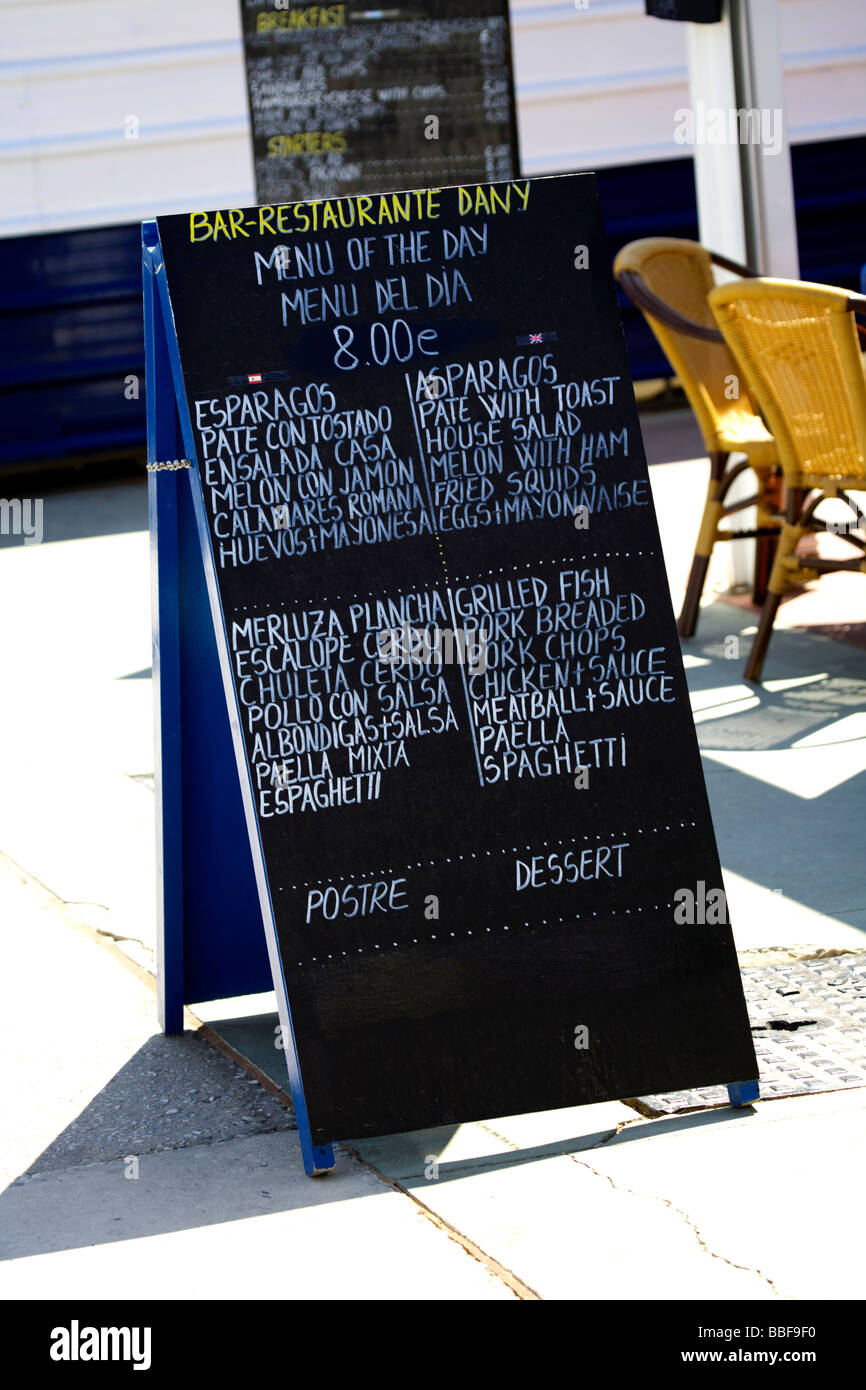 BREAKFAST
STARTERS
BAR-RESTAURANTE DANY
MENU OF THE DAY
MENU DEL DIA
8.00e
ESPARAGOS
PATE CON TOSTADO
ENSALADA CASA
MELON CON JAMON
CALAMARES ROMANA
HUEVOS+MAYONESA
ASPARAGOS
PATE WITH TOAST
HOUSE SALAD
MELON WITH HAM
FRIED SQUIDS
EGGS+MAYONNAISE
MERLUZA PLANCHA
ESCALOPE CERDO
CHULETA CERDO
POLLO CON SALSA
ALBONDIGAS+SALSA
PAELLA MIXTA
ESPAGHETTI
GRILLED FISH
PORK BREADED
PORK CHOPS
CHICKEN+SAUCE
MEATBALL+SAUCE
PAELLA
SPAGHETTI
POSTRE
DESSERT
alamy
Image ID: BBF9F0
www.alamy.com